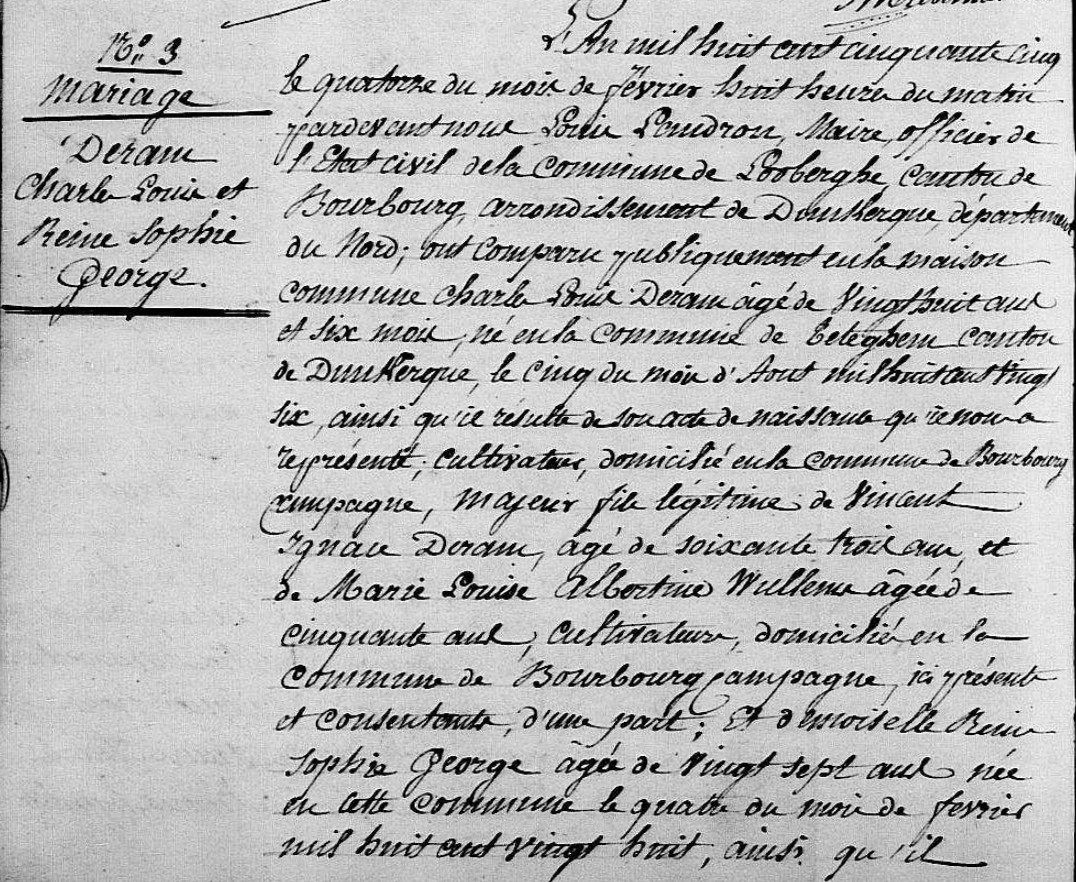 N.° 3
Mariage
Deram
Charles Louis et
Reine Sophie
George.
L'An mil huit cent cinquante cinq
le quatorze du mois de février huit heures du matin
pardevant nous Louis Landron, Maire, officier de
l'Etat civil de la commune de Looberghe, canton de
Bourbourg, arrondissement de Dunkerque, département
du Nord; ont comparu publiquement en la maison
commune Charles Louis Deram âgé de vingt huit ans
et six mois, né en la commune de Teteghem canton
de Dunkerque, le cinq du mois d'Aout mil huit cent vingt
six, ainsi qu'il résulte de son acte de naissance qu'il nous a
représenté; cultivateur, domicilié en la commune de Bourbourg
campagne, majeur fils légitime de Vincent
Ignace Deram, âgé de soixante trois ans, et
de Marie Louise Albertine Willems âgée de
cinquante ans, cultivateurs, domiciliés en la
commune de Bourbourg campagne, ici présents
et consentants, d'une part; Et demoiselle Reine
Sophie George âgée de vingt sept ans née
en cette commune le quatre du mois de fevrier
mil huit cent vingt huit, ainsi qu'il